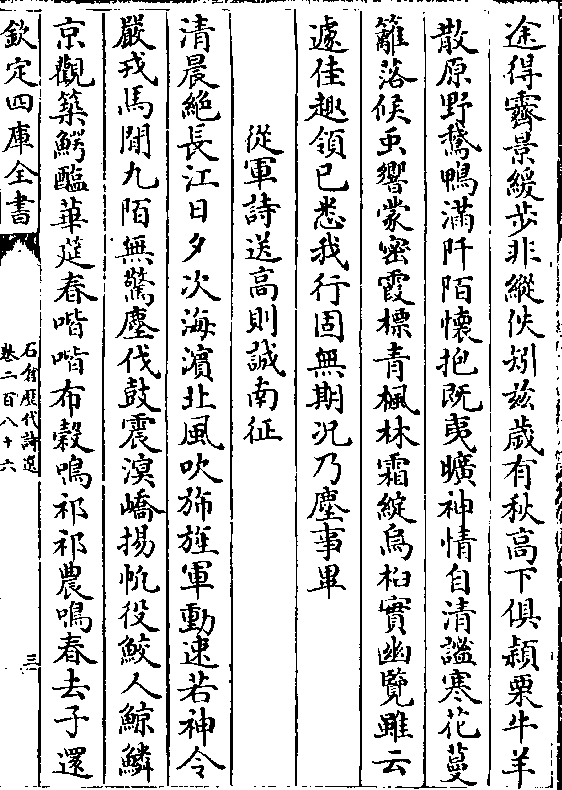 途得霽景緩步非縱佚矧茲歲有秋高下俱頴栗牛羊
散原野鵞鴨滿阡陌懷抱旣夷曠神情自清謐寒花蔓
籬落候䖝響蒙密霞標青楓林霜綻烏桕實幽覽雖云
遽佳趣領已悉我行固無期况乃塵事畢
從軍詩送高則誠南征
清晨絶長江日夕次海濵北風吹斾旌軍動速若神令
嚴戎馬閒九陌無驚塵伐鼓震溟嶠揚帆役鮫人鯨鱗
京觀築鰐醢華筵春喈喈布穀鳴祁祁農鳴春去子還
欽定四庫全書
石倉歷代詩選
卷二百八十六
三